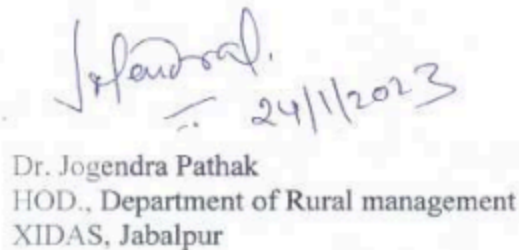 24/1/2023
Dr. Jogendra Pathak
HOD., Department of Rural management
XIDAS, Jabalpur